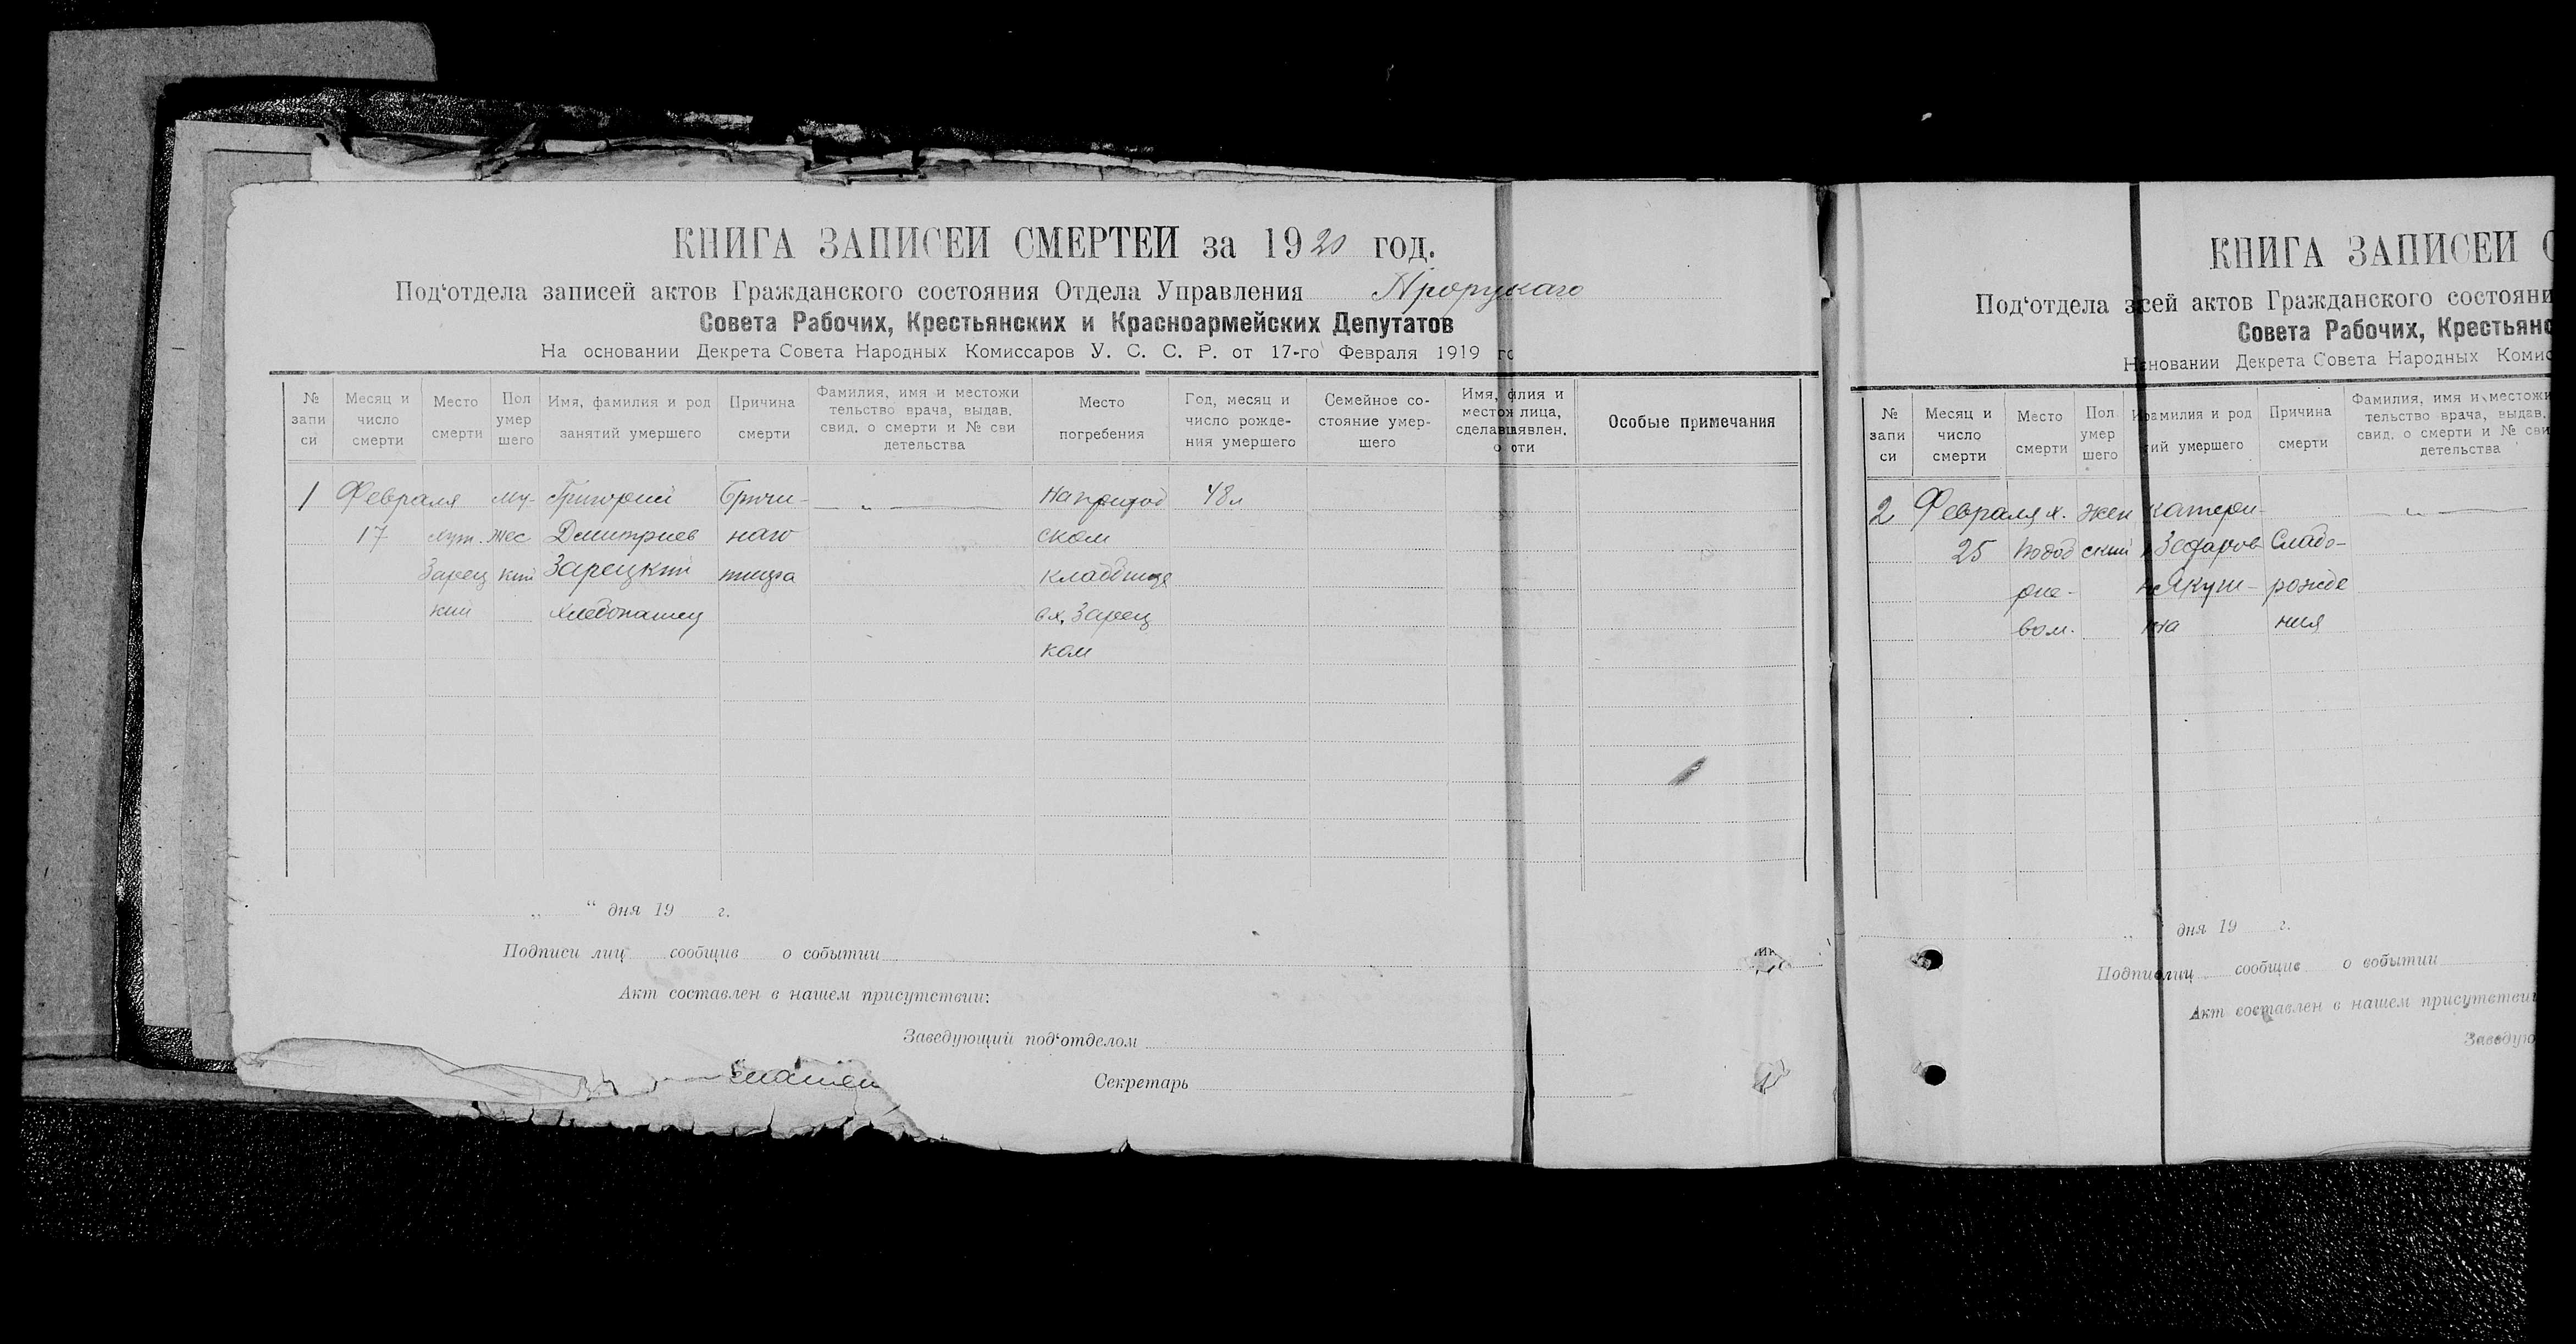 КНИГА ЗАПИСЕЙ СМЕРТЕЙ за 1920 год.
Под‘отдела записей актов Гражданского состояния Отдела Управления
Совета Рабочих, Крестьянских и Красноармейских Депутатов
На основании Декрета Совета Народных Комиссаров У. С. С. Р. от 17-го Февраля 1919 го
№ запи си
Месяц и число смерти
Место смерти
Пол умер шего
Имя, фамилия и род занятий умершего
Причина смерти
Фамилия, имя и местожи тельство врача, выдав. свид. о смерти и № сви детельства
Место погребения
Год, месяц и число рожде- ния умершего
Семейное со- стояние умер- шего
Имя, фамилия и место лица, сделавш явлен.
Особые примечания
1 Февраля му- Григорий Брюш- — „ — На приход 48 л
17 хут. жес Дмитриев наго ском
Зарец кий Зарецкий тифа кладбище
кий хлебопашец в х. Зарец
ком
„ “ дня 19 г.
Подписи лиц сообщив о событии
Акт составлен в нашем присутствии:
Заведующий под‘отделом
Секретарь
КНИГА ЗАПИСЕЙ С
Под‘отдела з сей актов Гражданского состояни
Совета Рабочих, Крестьянс
Н новании Декрета Совета Народных Комис
№ запи си
Месяц и число смерти
Место смерти
Пол умер шего
И фамилия и род тий умершего
Причина смерти
Фамилия, имя и местожи тельство врача, выдав. свид. о смерти и № сви детельства
2 Февраля х. жен катери- — „ —
25 ский Слабо-
Якуш- рожде
вом. ка ния
„ дня 19 г.
Подпи лиц сообщив о событии
Акт составлен в нашем присутствии
Заведую